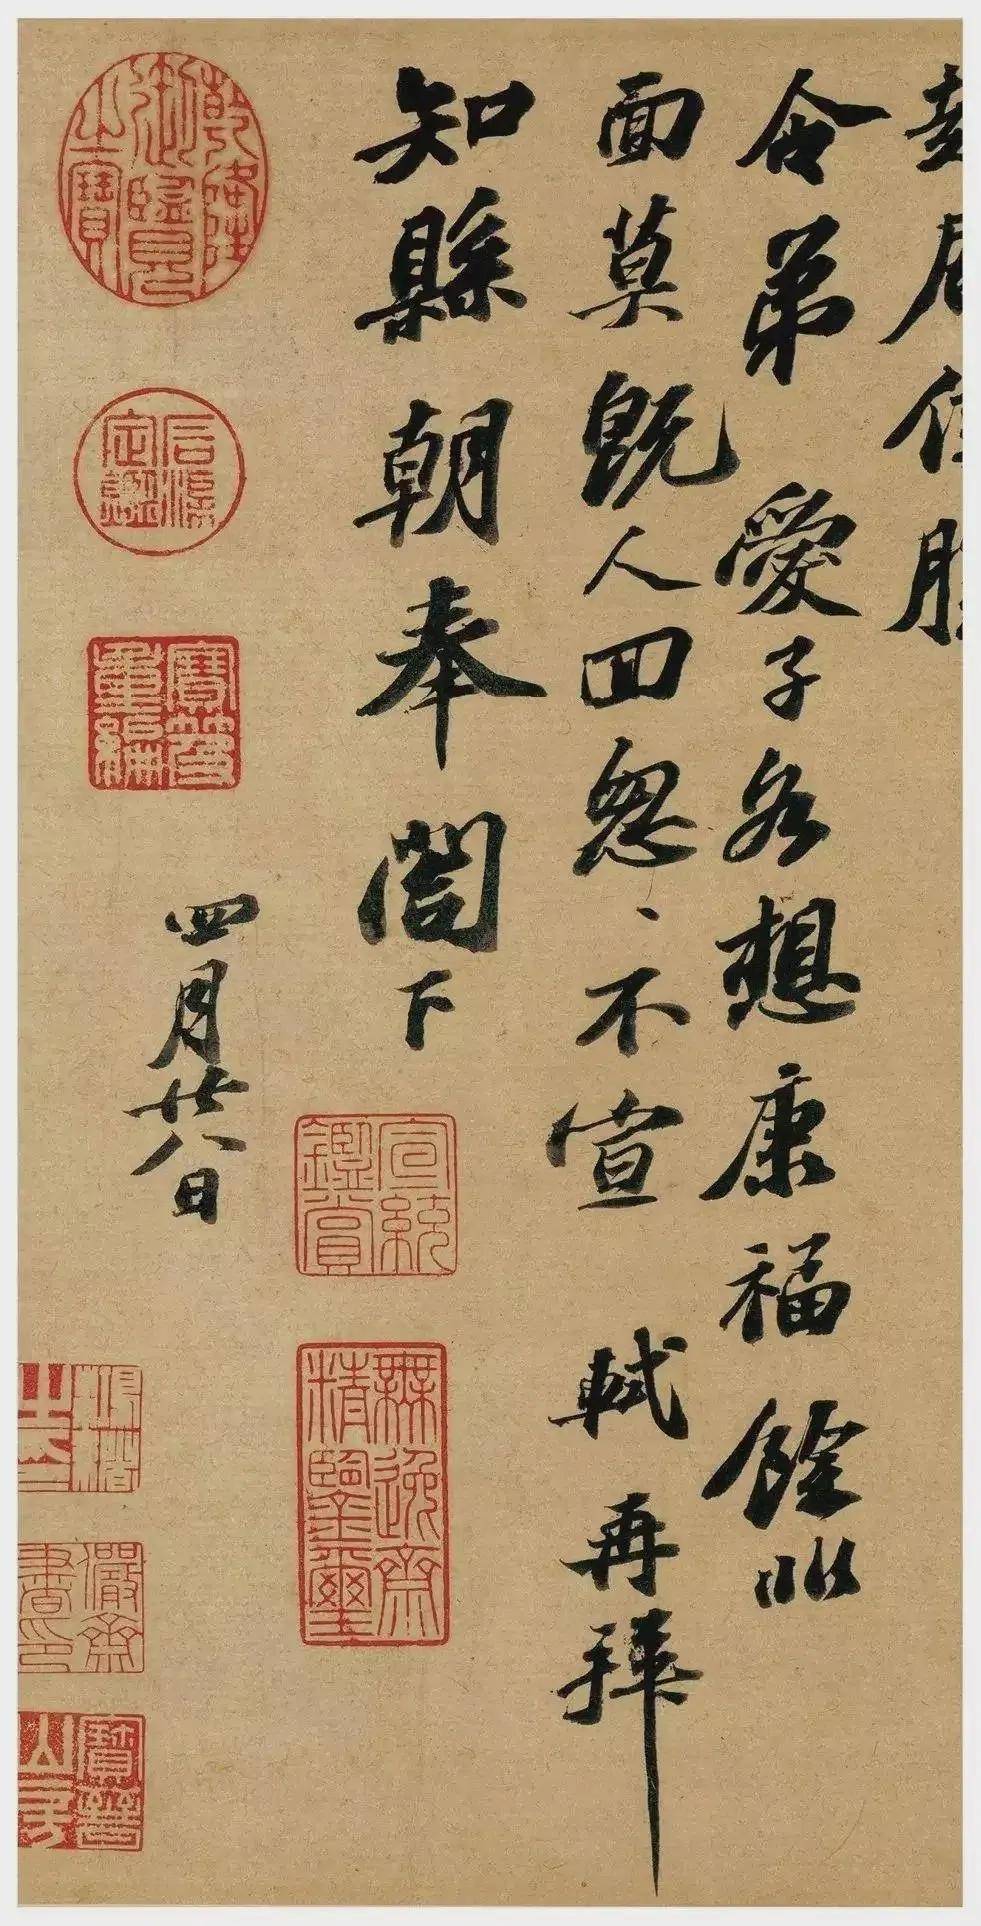 起居佳勝
令弟愛子各想康福餘非
面莫既人回怱、不宣 軾再拜
知縣朝奉閤下
四月廿八日
乾隆御覽之寶
石渠定鑑
寶笈重編
宣統鑑賞
無逸齋精鑒璽
儼齋書印